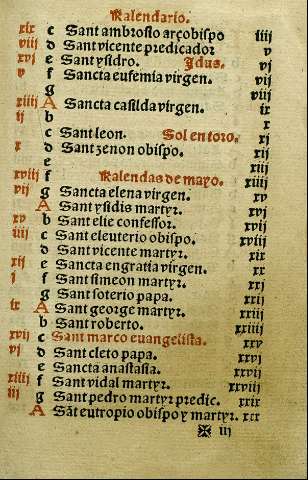 Kalendario.
xix c Sant ambrosio arçobispo iiij
viij d Sant vicente predicador v
xvj e Sant ysidro. Idus. vj
v f Sancta eufemia virgen. vij
g viij
xiiij A Sancta casilda virgen. ix
ij b x
c Sant leon. Sol en toro. xj
x d Sant zenon obispo. xij
e xiij
xviij f Kalendas de mayo. xiiij
vij g Sancta elena virgen. xv
A Sant ysidis martyr. xvj
xv b Sant elie confessor. xvij
iiij c Sant eleuterio obispo. xviij
d Sant vicente martyr. xix
xij e Sancta engratia virgen. xx
j f Sant simeon martyr. xxj
g Sant soterio papa. xxij
ix A Sant george martyr. xxiij
b Sant roberto. xxiiij
xvij c Sant marco euangelista. xxv
vj d Sant cleto papa. xxvj
e Sancta anastasia. xxvij
xiiij f Sant vidal martyr. xxviij
iij g Sant pedro martyr predic. xxix
A Sãt eutropio obispo y martyr. xxx
✠ iij